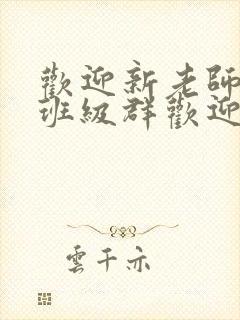 歡迎新老師
班級群歡迎
雲千亦